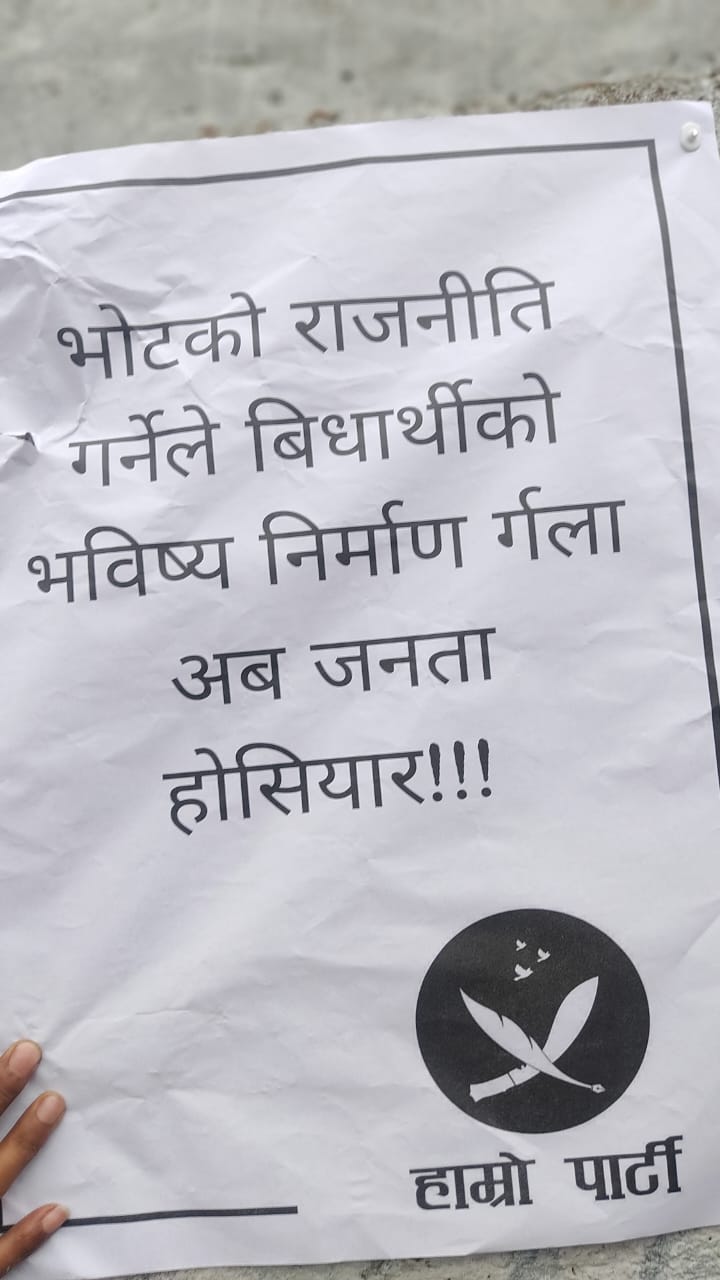 भोटको राजनीति
गर्नेले बिधार्थीको
भविष्य निर्माण र्गला
अब जनता
होसियार!!!
हाम्रो पार्टी